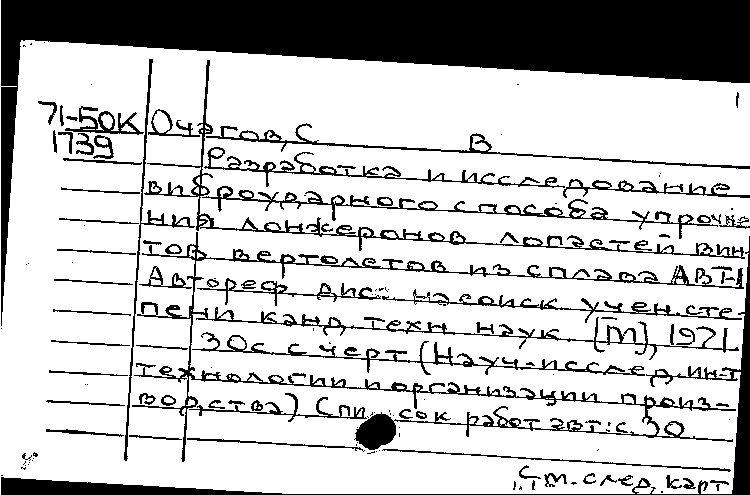 1
71-50К Очагов, С В
1739
Разработка и исследование
виброударного способа упрочне-
ния лонжеронов лопастей вин-
тов вертолетов из сплава АВТ-1
Автореф. дис. на соиск. учен. сте-
пени канд. техн. наук. [М], 1971.
30с. с черт. (Науч.-исслед. ин-т
технологии и организации произ-
водства) Список работ авт.: с. 30
См. след. карт